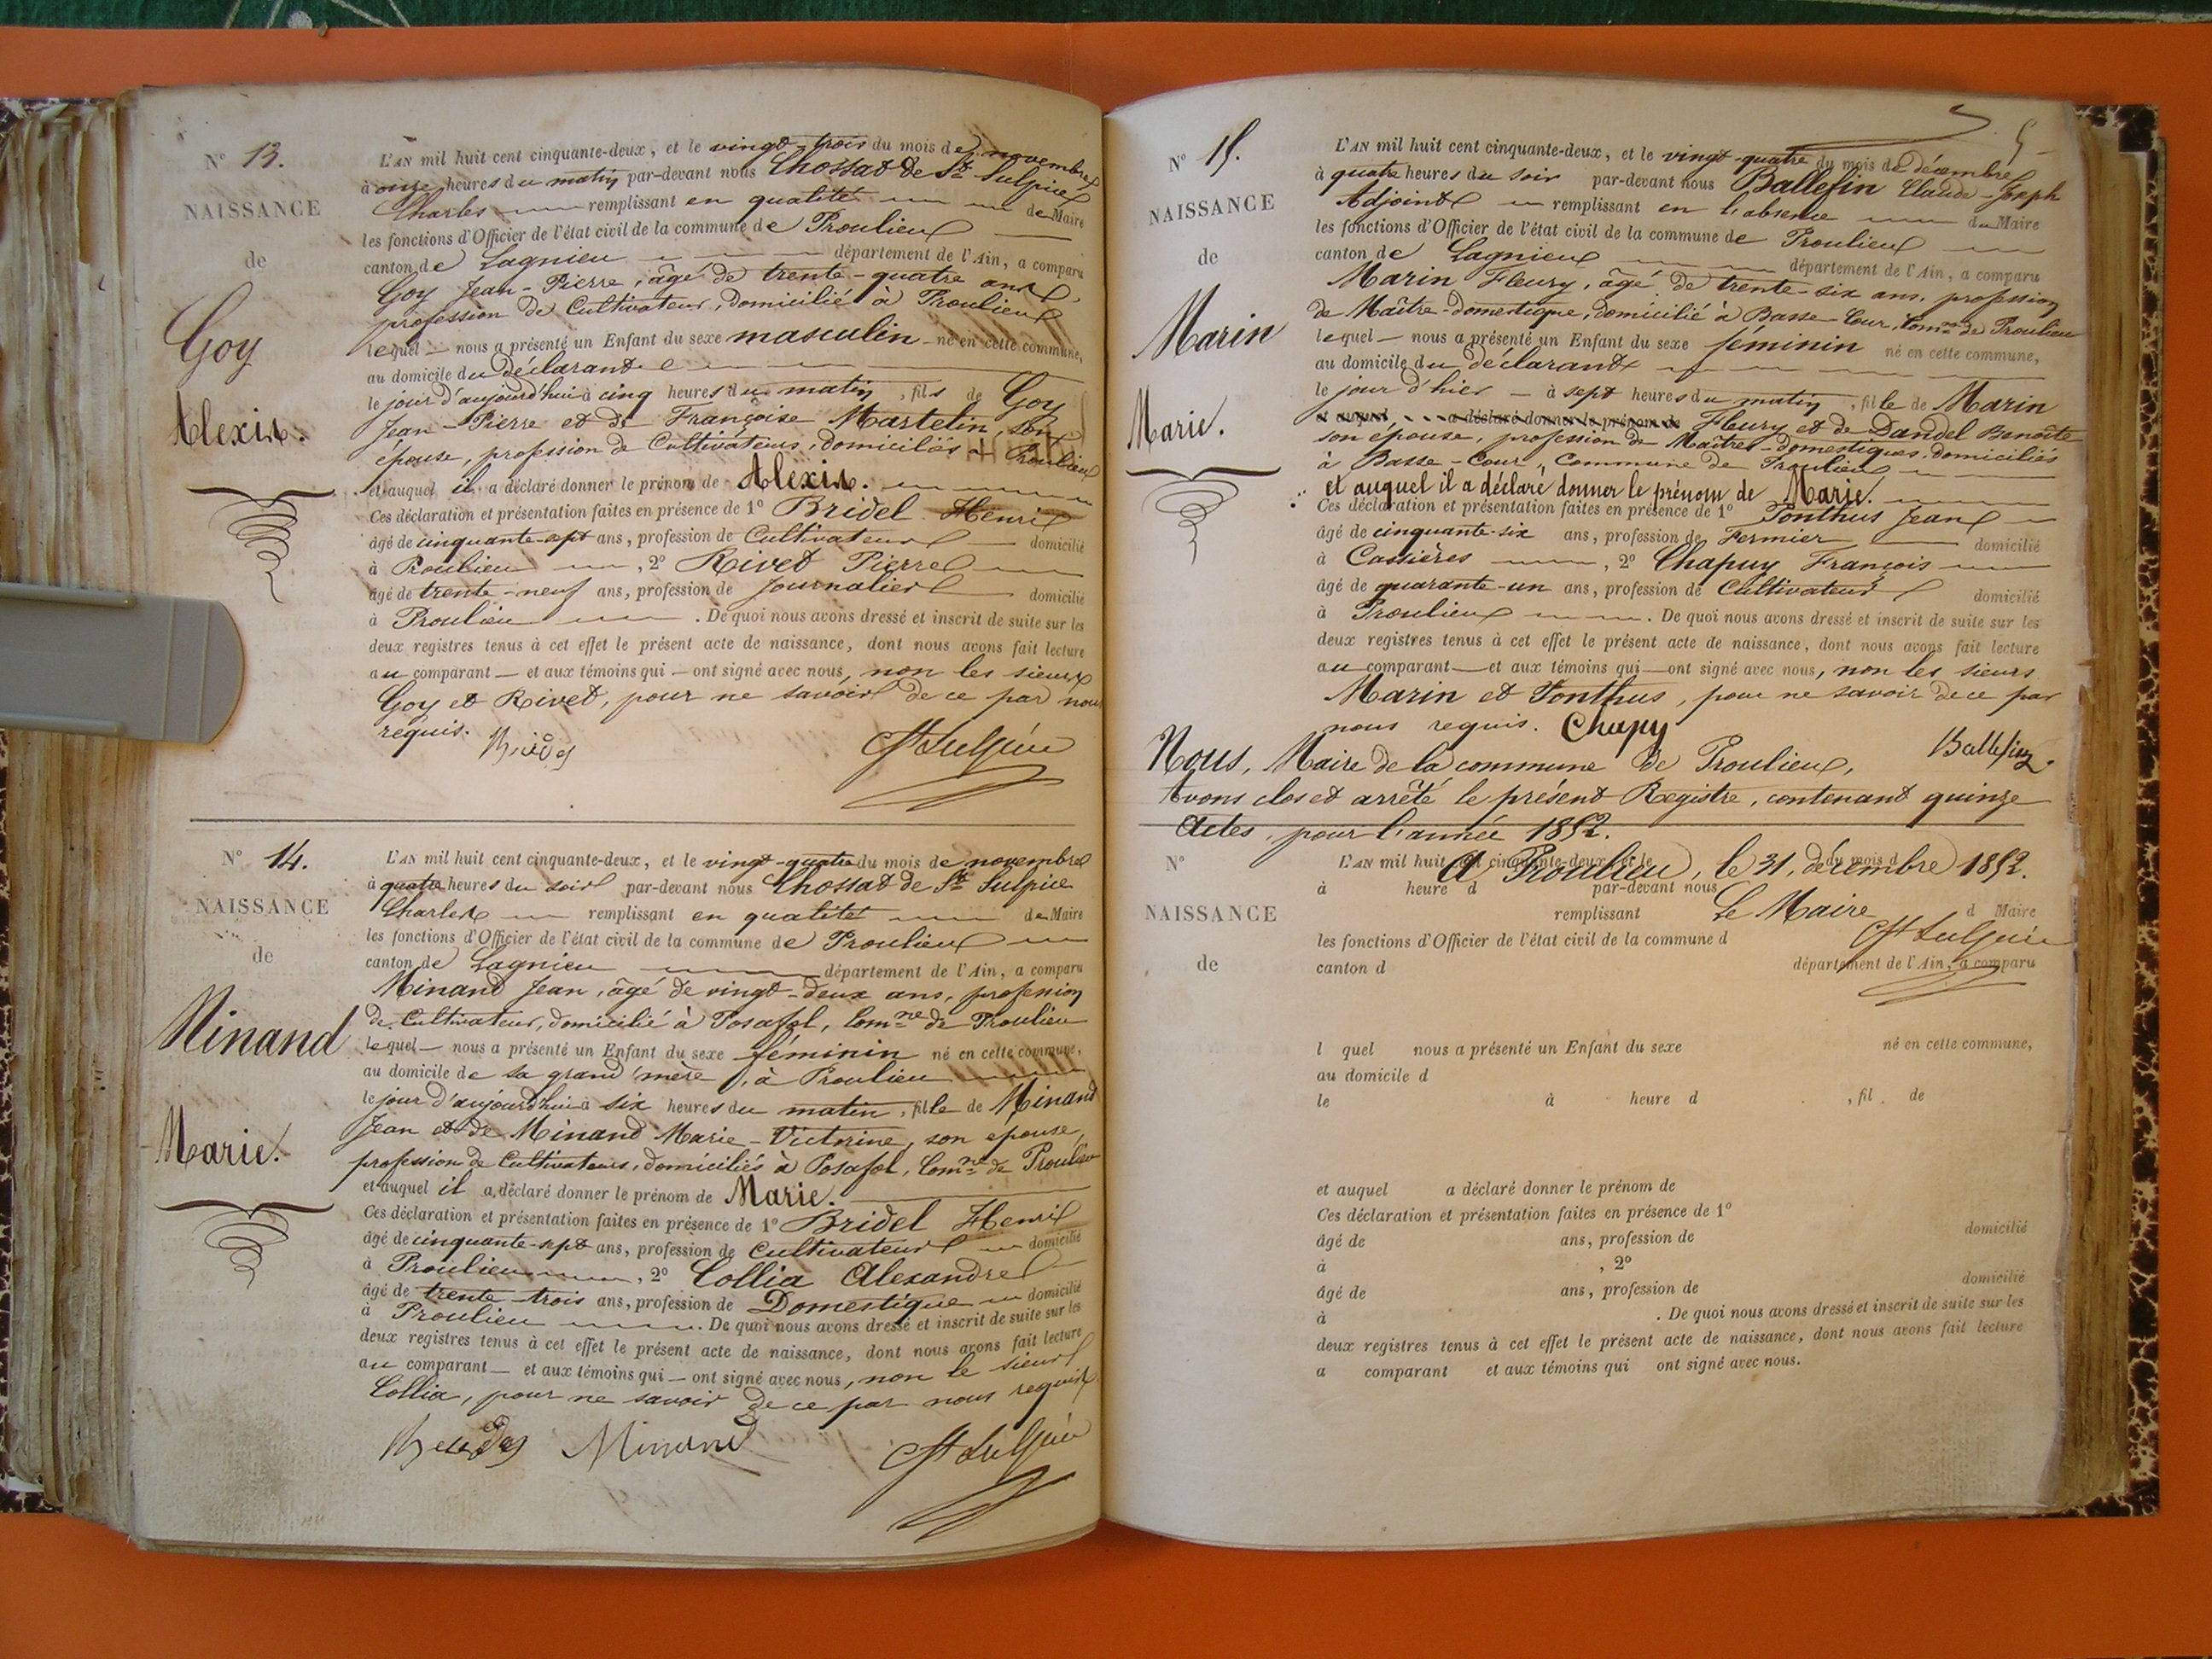 N° 13.
NAISSANCE
de
Goy
Alexis.
L'AN mil huit cent cinquante-deux, et le vingt-trois du mois de novembre
à onze heures du matin par-devant nous Chossat de St Sulpice
Charles remplissant en qualité de Maire
les fonctions d'Officier de l'état civil de la commune de Proulieu
canton de Lagnieu département de l'Ain, a comparu
Goy Jean-Pierre, âgé de trente-quatre ans,
profession de Cultivateur, domicilié à Proulieu
lequel — nous a présenté un Enfant du sexe masculin né en cette commune,
au domicile du déclarant
le jour d'aujourd'hui à cinq heures du matin, fils de Goy
Jean-Pierre et de Françoise Martelin, son
épouse, profession de Cultivateurs, domiciliés à Proulieu
et auquel il a déclaré donner le prénom de Alexis.
Ces déclaration et présentation faites en présence de 1° Bridel Henri
âgé de cinquante-sept ans, profession de Cultivateur domicilié
à Proulieu, 2° Rivet Pierre
âgé de trente-neuf ans, profession de Journalier domicilié
à Proulieu. De quoi nous avons dressé et inscrit de suite sur les
deux registres tenus à cet effet le présent acte de naissance, dont nous avons fait lecture
au comparant — et aux témoins qui — ont signé avec nous, non les sieurs
Goy et Rivet, pour ne savoir de ce par nous
requis.
St Sulpice
N° 14.
NAISSANCE
de
Minand
Marie.
L'AN mil huit cent cinquante-deux, et le vingt-quatre du mois de novembre
à quatre heures du soir par-devant nous Chossat de St Sulpice
Charles remplissant en qualité de Maire
les fonctions d'Officier de l'état civil de la commune de Proulieu
canton de Lagnieu département de l'Ain, a comparu
Minand Jean, âgé de vingt-deux ans, profession
de Cultivateur, domicilié à Posafol, Comne de Proulieu
lequel — nous a présenté un Enfant du sexe féminin né en cette commune,
au domicile de sa grand'mère, à Proulieu
le jour d'aujourd'hui à six heures du matin, fille de Minand
Jean et de Minand Marie-Victorine, son épouse,
profession de Cultivateurs, domiciliés à Posafol, Comne de Proulieu
et auquel il a déclaré donner le prénom de Marie.
Ces déclaration et présentation faites en présence de 1° Bridel Henri
âgé de cinquante-sept ans, profession de Cultivateur domicilié
à Proulieu, 2° Collia Alexandre
âgé de trente-trois ans, profession de Domestique domicilié
à Proulieu. De quoi nous avons dressé et inscrit de suite sur les
deux registres tenus à cet effet le présent acte de naissance, dont nous avons fait lecture
au comparant — et aux témoins qui — ont signé avec nous, non le sieur
Collia, pour ne savoir de ce par nous requis.
Minand St Sulpice
5
N° 15.
NAISSANCE
de
Marin
Marie.
L'AN mil huit cent cinquante-deux, et le vingt-quatre du mois de décembre
à quatre heures du soir par-devant nous Ballefin Claude-Joseph
Adjoint remplissant en l'absence du Maire
les fonctions d'Officier de l'état civil de la commune de Proulieu
canton de Lagnieu département de l'Ain, a comparu
Marin Fleury, âgé de trente-six ans, profession
de Maître-domestique, domicilié à Basse-Cour, Comne de Proulieu
lequel — nous a présenté un Enfant du sexe féminin né en cette commune,
au domicile du déclarant
le jour d'hier — à sept heures du matin, fille de Marin
et auquel a déclaré donner le prénom de Fleury et de Dandel Benoîte
son épouse, profession de Maîtres-domestiques, domiciliés
à Basse-Cour, Commune de Proulieu
et auquel il a déclaré donner le prénom de Marie.
Ces déclaration et présentation faites en présence de 1° Ponthus Jean
âgé de cinquante-six ans, profession de Fermier domicilié
à Cassières, 2° Chapuy François
âgé de quarante-un ans, profession de Cultivateur domicilié
à Proulieu. De quoi nous avons dressé et inscrit de suite sur les
deux registres tenus à cet effet le présent acte de naissance, dont nous avons fait lecture
au comparant — et aux témoins qui — ont signé avec nous, non les sieurs
Marin et Ponthus, pour ne savoir de ce par
nous requis. Chapy
Ballefin
Nous, Maire de la commune de Proulieu,
Avons clos et arrêté le présent Registre, contenant quinze
Actes, pour l'année 1852.
A Proulieu, le 31 décembre 1852.
Le Maire
St Sulpice
N°
NAISSANCE
de
L'AN mil huit cent cinquante-deux, et le du mois d
à heure d par-devant nous
remplissant d Maire
les fonctions d'Officier de l'état civil de la commune d
canton d département de l'Ain, a comparu
l quel nous a présenté un Enfant du sexe né en cette commune,
au domicile d
le à heure d , fil de
et auquel a déclaré donner le prénom de
Ces déclaration et présentation faites en présence de 1°
âgé de ans, profession de domicilié
à , 2°
âgé de ans, profession de domicilié
à . De quoi nous avons dressé et inscrit de suite sur les
deux registres tenus à cet effet le présent acte de naissance, dont nous avons fait lecture
a comparant et aux témoins qui ont signé avec nous.